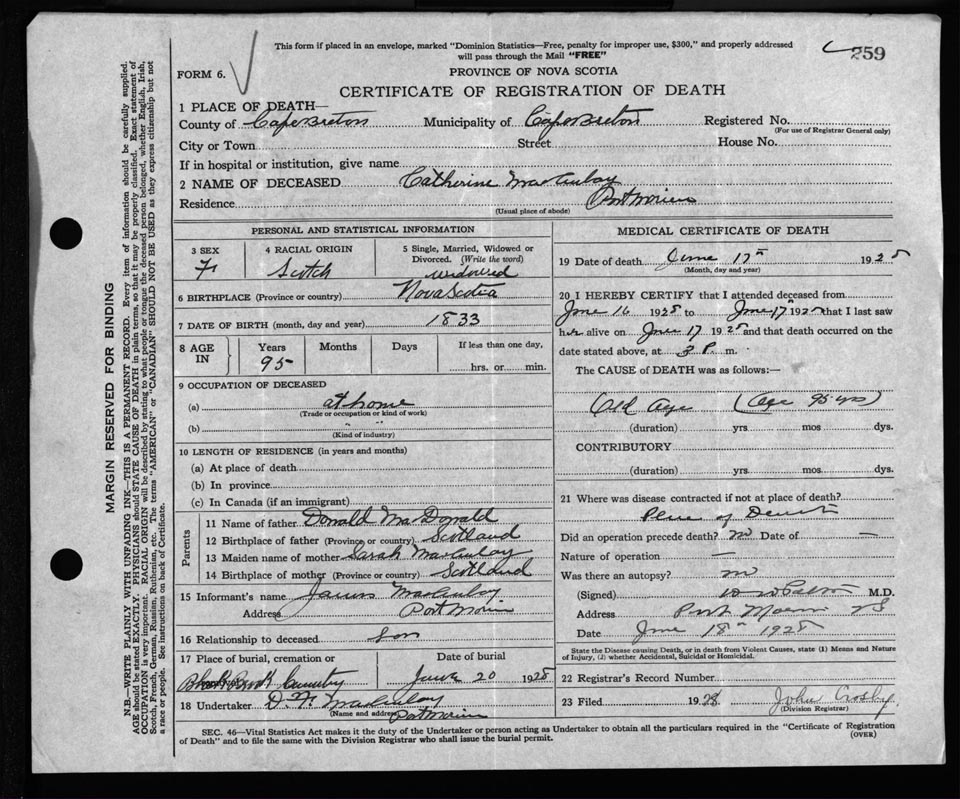 This form if placed in an envelope, marked "Dominion Statistics—Free, penalty for improper use, $300," and properly addressed
will pass through the Mail "FREE"
259
FORM 6.
PROVINCE OF NOVA SCOTIA
CERTIFICATE OF REGISTRATION OF DEATH
1 PLACE OF DEATH—
County of Cape Breton Municipality of Cape Breton Registered No.
(For use of Registrar General only)
City or Town Street House No.
If in hospital or institution, give name
2 NAME OF DECEASED Catherine MacAulay
Residence Port Morien
(Usual place of abode)
PERSONAL AND STATISTICAL INFORMATION
3 SEX 4 RACIAL ORIGIN 5 Single, Married, Widowed or
Divorced. (Write the word)
F. Scotch widowed
6 BIRTHPLACE (Province or country) Nova Scotia
7 DATE OF BIRTH (month, day and year) 1833
8 AGE IN Years Months Days If less than one day,
95 hrs. or min.
9 OCCUPATION OF DECEASED
(a) at home
(Trade or occupation or kind of work)
(b) " "
(Kind of industry)
10 LENGTH OF RESIDENCE (in years and months)
(a) At place of death
(b) In province
(c) In Canada (if an immigrant)
Parents
11 Name of father Donald MacDonald
12 Birthplace of father (Province or country) Scotland
13 Maiden name of mother Sarah MacAulay
14 Birthplace of mother (Province or country) Scotland
15 Informant's name James MacAulay
Address Port Morien
16 Relationship to deceased son
17 Place of burial, cremation or Date of burial
Cemetery June 20 1928
18 Undertaker D. MacAulay
(Name and address) Port Morien
MEDICAL CERTIFICATE OF DEATH
19 Date of death June 17th 1928
(Month, day and year)
20 I HEREBY CERTIFY that I attended deceased from
June 16 1928 to June 17th 1928 that I last saw
her alive on June 17 1928 and that death occurred on the
date stated above, at 3 P. m.
The CAUSE of DEATH was as follows:—
Old Age (Age 95 yrs)
(duration) yrs mos dys.
CONTRIBUTORY
(duration) yrs. mos dys.
21 Where was disease contracted if not at place of death?
Place of Death
Did an operation precede death? no Date of —
Nature of operation —
Was there an autopsy? no
(Signed) M.D.
Address Port Morien NS
Date June 18th 1928
State the Disease causing Death, or in death from Violent Causes, state (1) Means and Nature
of Injury, (2) whether Accidental, Suicidal or Homicidal.
22 Registrar's Record Number
23 Filed 1928 John Crosby
(Division Registrar)
SEC. 46—Vital Statistics Act makes it the duty of the Undertaker or person acting as Undertaker to obtain all the particulars required in the "Certificate of Registration
of Death" and to file the same with the Division Registrar who shall issue the burial permit. (OVER)
MARGIN RESERVED FOR BINDING
N.B.—WRITE PLAINLY WITH UNFADING INK—THIS IS A PERMANENT RECORD. Every item of information should be carefully supplied.
AGE should be stated EXACTLY. PHYSICIANS should STATE CAUSE OF DEATH in plain terms, so that it may be properly classified. Exact statement of
OCCUPATION is very important. RACIAL ORIGIN will be described by stating to what people or tongue the deceased person belonged, whether English, Irish,
Scotch, French, German, Russian, Ruthenian, etc. The terms "AMERICAN" or "CANADIAN" SHOULD NOT BE USED as they express citizenship but not
a race or people. See instructions on back of Certificate.